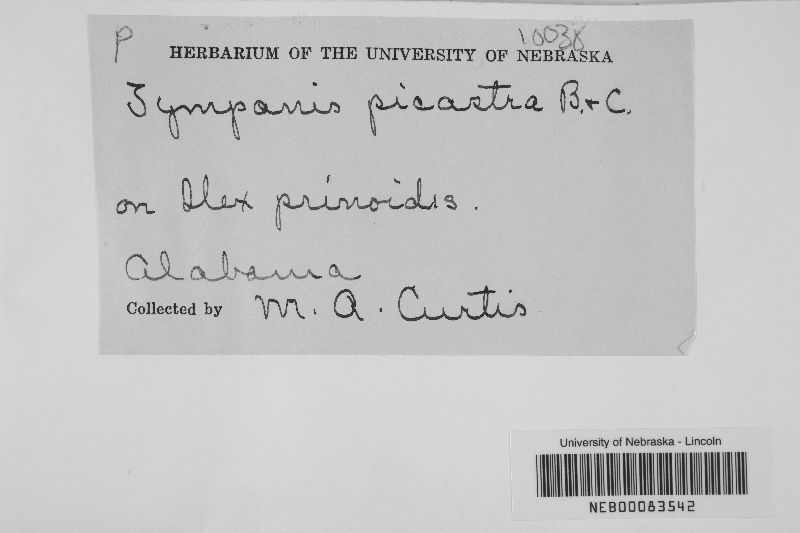 P 10038
HERBARIUM OF THE UNIVERSITY OF NEBRASKA
Tympanis picastra B. & C.
on Ilex prinoidis.
Alabama
Collected by M. A. Curtis
University of Nebraska - Lincoln
NEB00083542